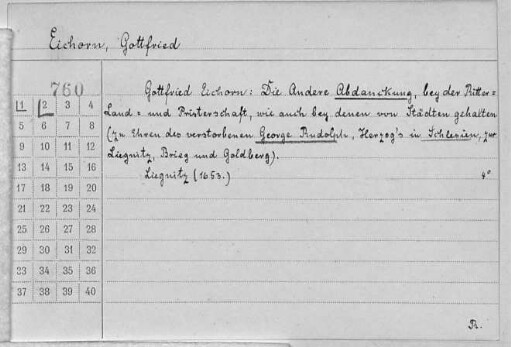 Eichorn, Gottfried
760
Gottfried Eichorn: Die Andere Abdanckung, bey der Ritter=
Land= und Pristerschaft, wie auch bey denen von Städten gehalten
(zu Ehren des verstorbenen George Rudolph, Herzog's in Schlesien, zur
Liegnitz, Brieg und Goldberg).
Liegnitz (1653.) 4°
1 2 3 4
5 6 7 8
9 10 11 12
13 14 15 16
17 18 19 20
21 22 23 24
25 26 27 28
29 30 31 32
33 34 35 36
37 38 39 40
R.